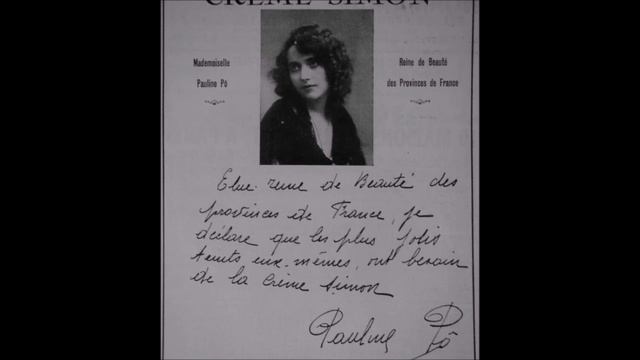 CRÈME SIMON
Mademoiselle
Pauline Pô
Reine de Beauté
des Provinces de France
Elue reine de Beauté des
provinces de France, je
déclare que les plus jolis
teints eux-mêmes, ont besoin
de la Crème Simon
Pauline Pô